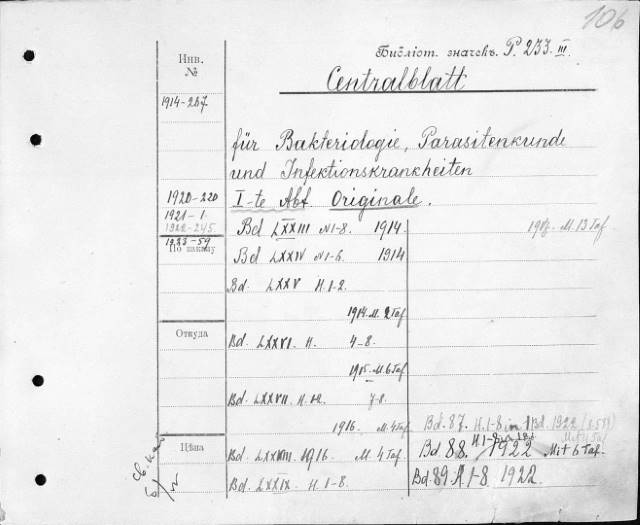 106
Библіот. значекъ P. 233. III.
Centralblatt
Инв. №
1914-257
für Bakteriologie, Parasitenkunde
und Infektionskrankheiten
I-te Abt. Originale.
1920-220
1921-1.
1922-245.
1923-59
По заказу
Bd LXXIII N1-8. 1914.
M. 13 Taf
Bd LXXIV N1-6. 1914
Bd. LXXV H.1-2.
1914. M. 2 Taf
Откуда
Bd. LXXVI. H. 4-8.
1915. M. 6 Taf
Bd. LXXVII. H. 7-8.
1916. M. 4 Taf
Bd. 87. H. 1-8 in 1 Bd. 1922
Цѣна
Bd. LXXVIII. 1916. M. 4 Taf.
Bd. 88. 1922 Mit 6 Taf.
Bd. LXXIX. H. 1-8.
Bd. 89. H. 1-8. 1922.